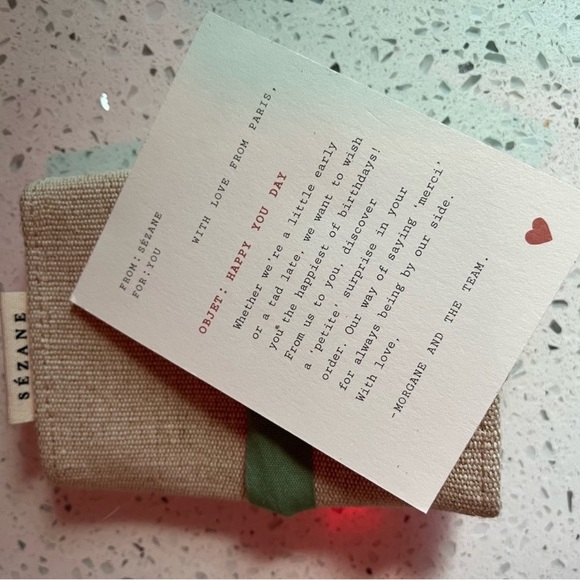 FROM: SÉZANE
FOR: YOU
WITH LOVE FROM PARIS,
OBJET: HAPPY YOU DAY
Whether we're a little early
or a tad late, we want to wish
you the happiest of birthdays!
From us to you, discover
a 'petite' surprise in your
order. Our way of saying 'merci'
for always being by our side.
With love,
-MORGANE AND THE TEAM.
SÉZANE